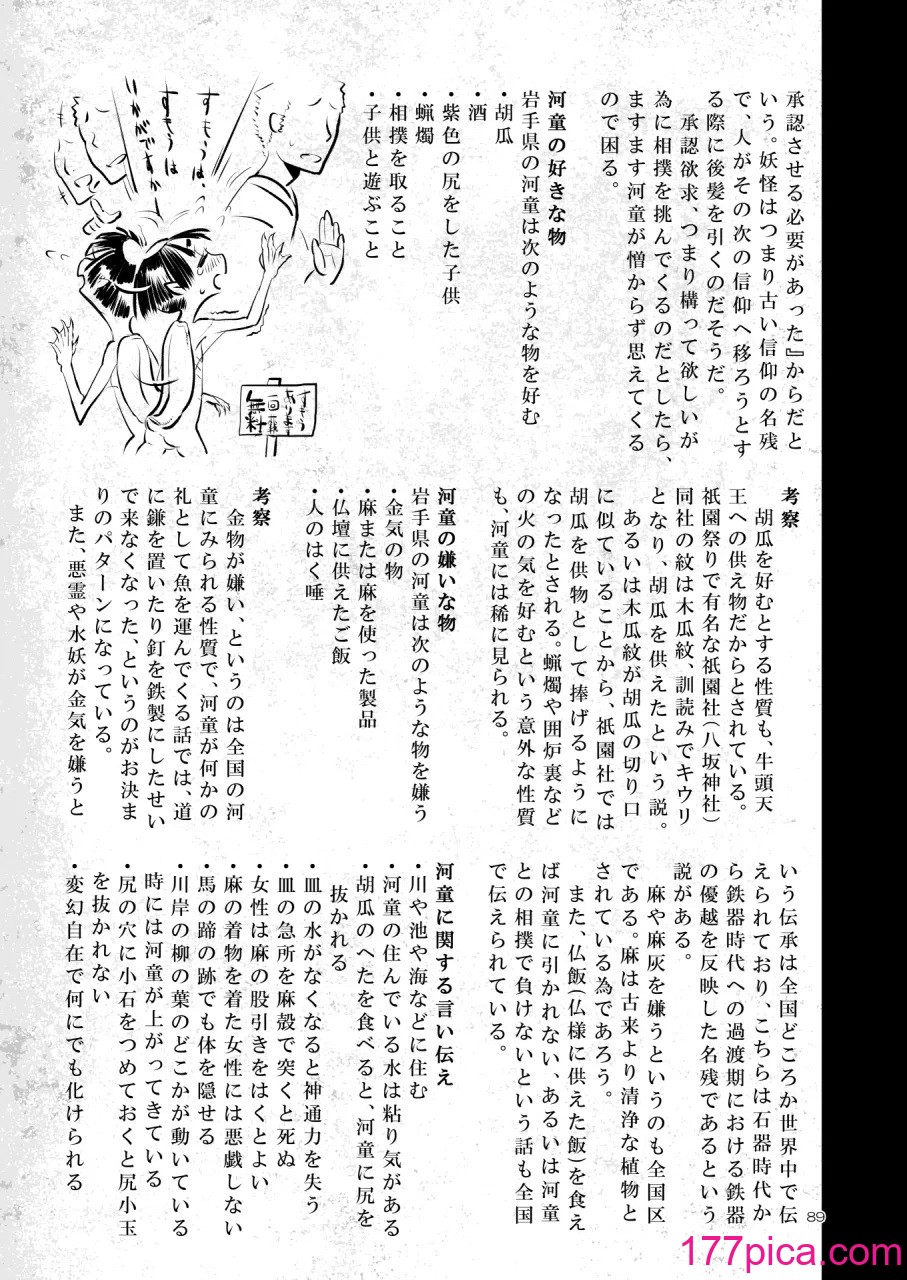 承認させる必要があった』からだと
いう。妖怪はつまり古い信仰の名残
で、人がその次の信仰へ移ろうとす
る際に後髪を引くのだそうだ。
承認欲求、つまり構って欲しいが
為に相撲を挑んでくるのだとしたら、
ますます河童が憎からず思えてくる
ので困る。
河童の好きな物
岩手県の河童は次のような物を好む
・胡瓜
・酒
・紫色の尻をした子供
・蝋燭
・相撲を取ること
・子供と遊ぶこと
すもうは、
すもうは
いかがですか
すもう
あります
一回
無料
考察
胡瓜を好むとする性質も、牛頭天
王への供え物だからとされている。
祇園祭りで有名な祇園社（八坂神社）
同社の紋は木瓜紋、訓読みでキウリ
となり、胡瓜を供えたという説。
あるいは木瓜紋が胡瓜の切り口
に似ていることから、祇園社では
胡瓜を供物として捧げるように
なったとされる。蝋燭や囲炉裏など
の火の気を好むという意外な性質
も、河童には稀に見られる。
河童の嫌いな物
岩手県の河童は次のような物を嫌う
・金気の物
・麻または麻を使った製品
・仏壇に供えたご飯
・人のはく唾
考察
金物が嫌い、というのは全国の河
童にみられる性質で、河童が何かの
礼として魚を運んでくる話では、道
に鎌を置いたり釘を鉄製にしたせい
で来なくなった、というのがお決ま
りのパターンになっている。
また、悪霊や水妖が金気を嫌うと
いう伝承は全国どころか世界中で伝
えられており、こちらは石器時代か
ら鉄器時代への過渡期における鉄器
の優越を反映した名残であるという
説がある。
麻や麻灰を嫌うというのも全国区
である。麻は古来より清浄な植物と
されている為であろう。
また、仏飯（仏様に供えた飯）を食え
ば河童に引かれない、あるいは河童
との相撲で負けないという話も全国
で伝えられている。
河童に関する言い伝え
・川や池や海などに住む
・河童の住んでいる水は粘り気がある
・胡瓜のへたを食べると、河童に尻を
抜かれる
・皿の水がなくなると神通力を失う
・皿の急所を麻殻で突くと死ぬ
・女性は麻の股引きをはくとよい
・麻の着物を着た女性には悪戯しない
・馬の蹄の跡でも体を隠せる
・川岸の柳の葉のどこかが動いている
時には河童が上がってきている
・尻の穴に小石をつめておくと尻小玉
を抜かれない
・変幻自在で何にでも化けられる
89
177pica.com